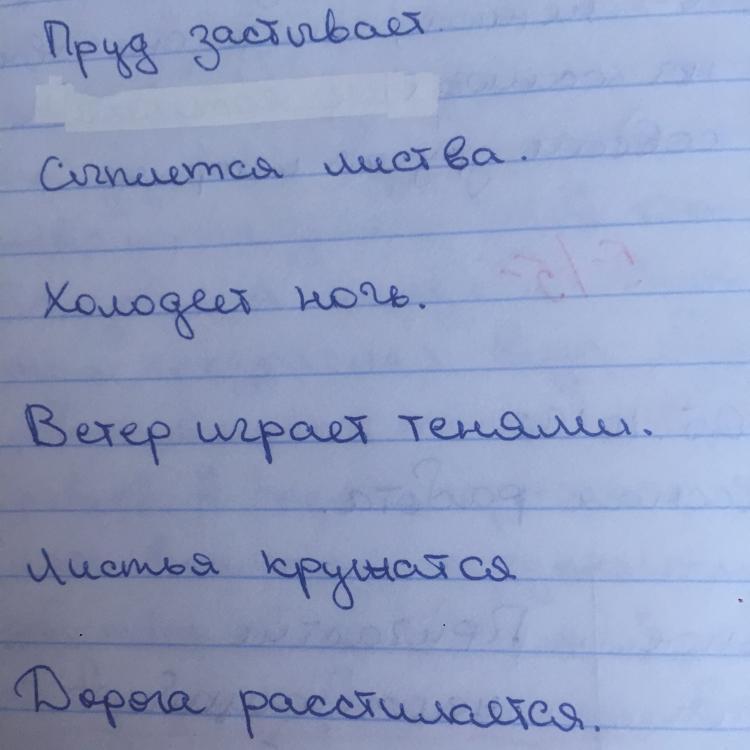 Пруд застывает
Сыплется листва.
Холодеет ночь.
Ветер играет тенями.
Листья кружатся
Дорога расстилается.